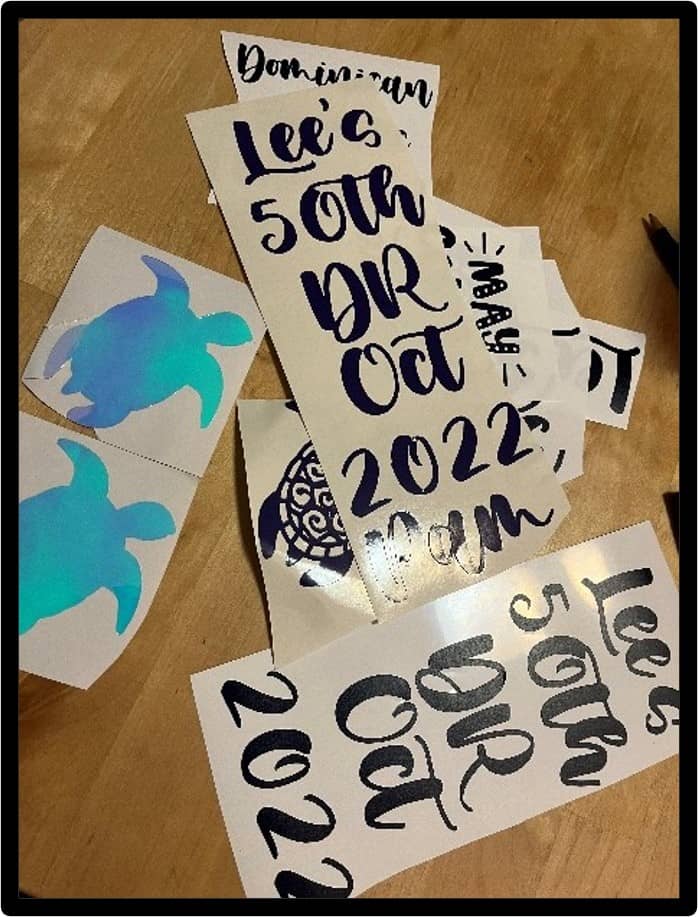 Dominican
Lee's
50th
DR
Oct
2022
Pam
MAY
Lee's
50th
DR
Oct
2022